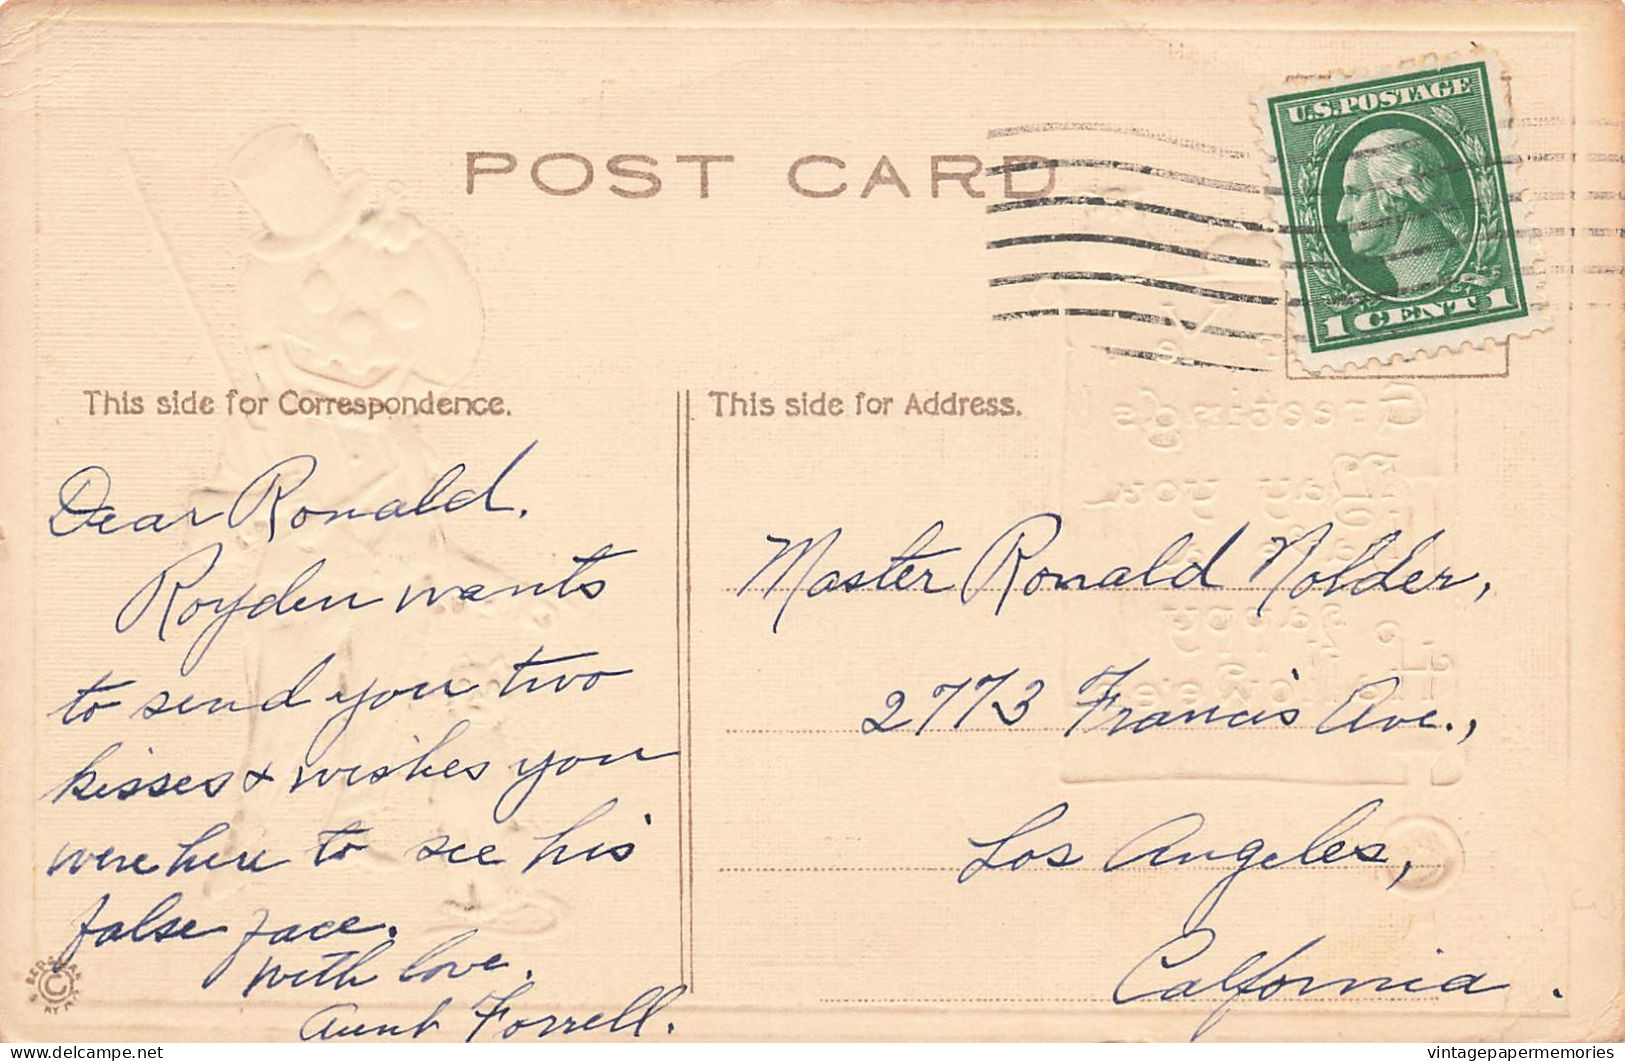 POST CARD
U.S. POSTAGE
1 CENT 1
This side for Correspondence.
Dear Ronald.
Royden wants
to send you two
kisses & wishes you
were here to see his
false face.
With love.
Aunt Forrell.
This side for Address.
Master Ronald Nolder,
2773 Francis Ave.,
Los Angeles,
California.
Greetings
May you
Happy
Hallowe'en
BERGMAN
C
vintagepapermemories